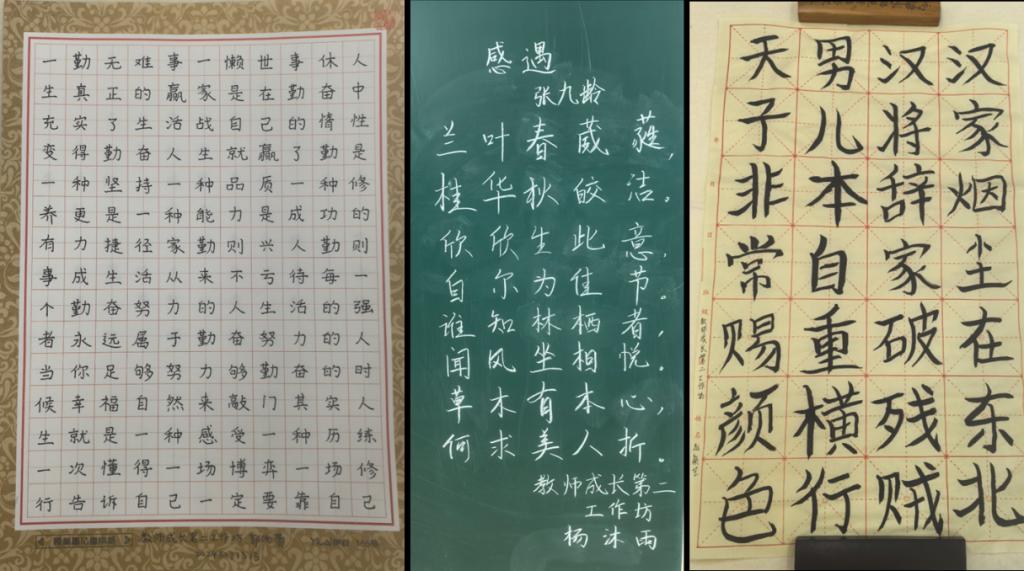 一勤无难事一懒世事休人
生真正的赢家是在勤奋中
充实了生活战自己的惰性
变得勤奋人生就赢了勤是
一种坚持一种品质一种修
养更是一种能力是成功的
有力捷径家勤则兴人勤则
事成生活从来不亏待每一
个勤奋努力的人生活的强
者永远属于勤奋努力的人
当你足够努力够勤奋的时
候幸福自然来敲门其实人
生就是一种感受一种历练
一次懂得一场博弈一场修
行告诉自己一定要靠自己
教师成长第二工作坊
感遇
张九龄
兰叶春葳蕤,
桂华秋皎洁。
欣欣生此意,
自尔为佳节。
谁知林栖者,
闻风坐相悦。
草木有本心,
何求美人折。
教师成长第二
工作坊
杨沐雨
汉家烟尘在东北
汉将辞家破残贼
男儿本自重横行
天子非常赐颜色
教师成长第二工作坊